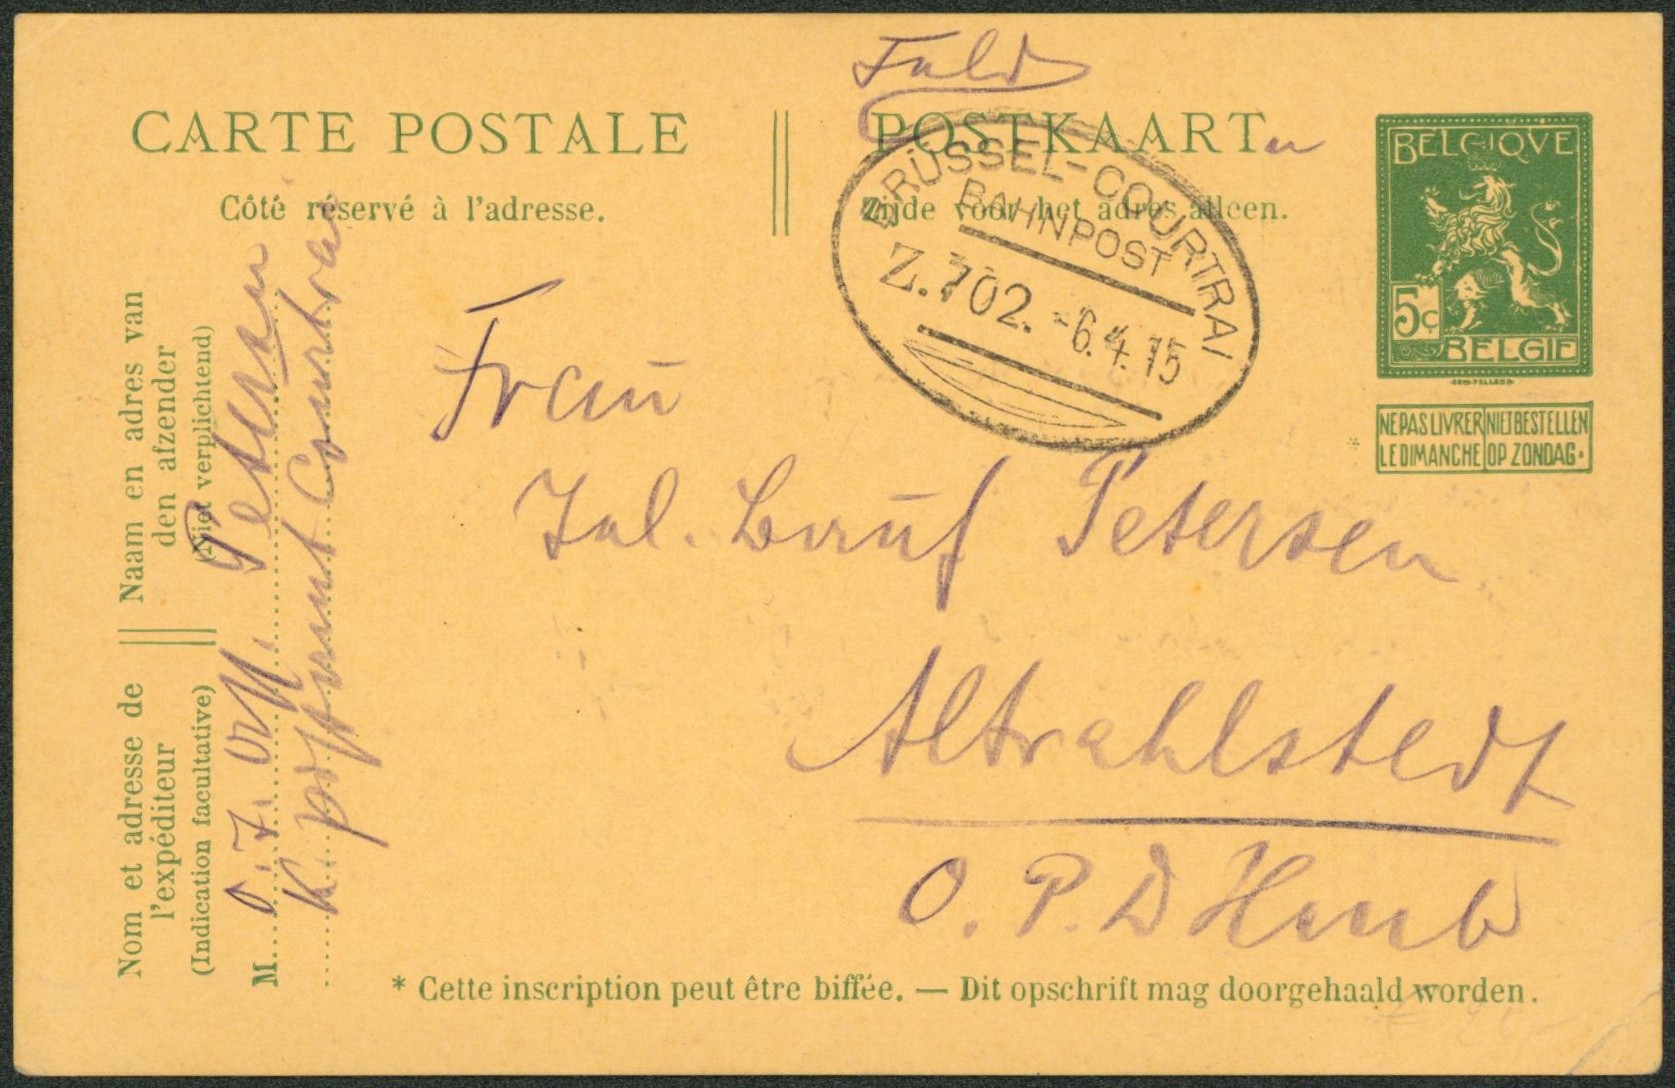 Feld
CARTE POSTALE
POSTKAART
Côté réservé à l'adresse.
Zijde voor het adres alleen.
BRÜSSEL-COURTRAI
BAHNPOST
Z.702. -6.4.15
BELGIQVE
5c
BELGIE
NE PAS LIVRER LE DIMANCHE
NIET BESTELLEN OP ZONDAG.
*
Frau
Petersen
Altrahlstedt
O.P.D Hmb
Naam en adres van
den afzender
(Niet verplichtend)
Nom et adresse de
l'expéditeur
(Indication facultative)
M.
Petersen
Courtrai
* Cette inscription peut être biffée. — Dit opschrift mag doorgehaald worden.